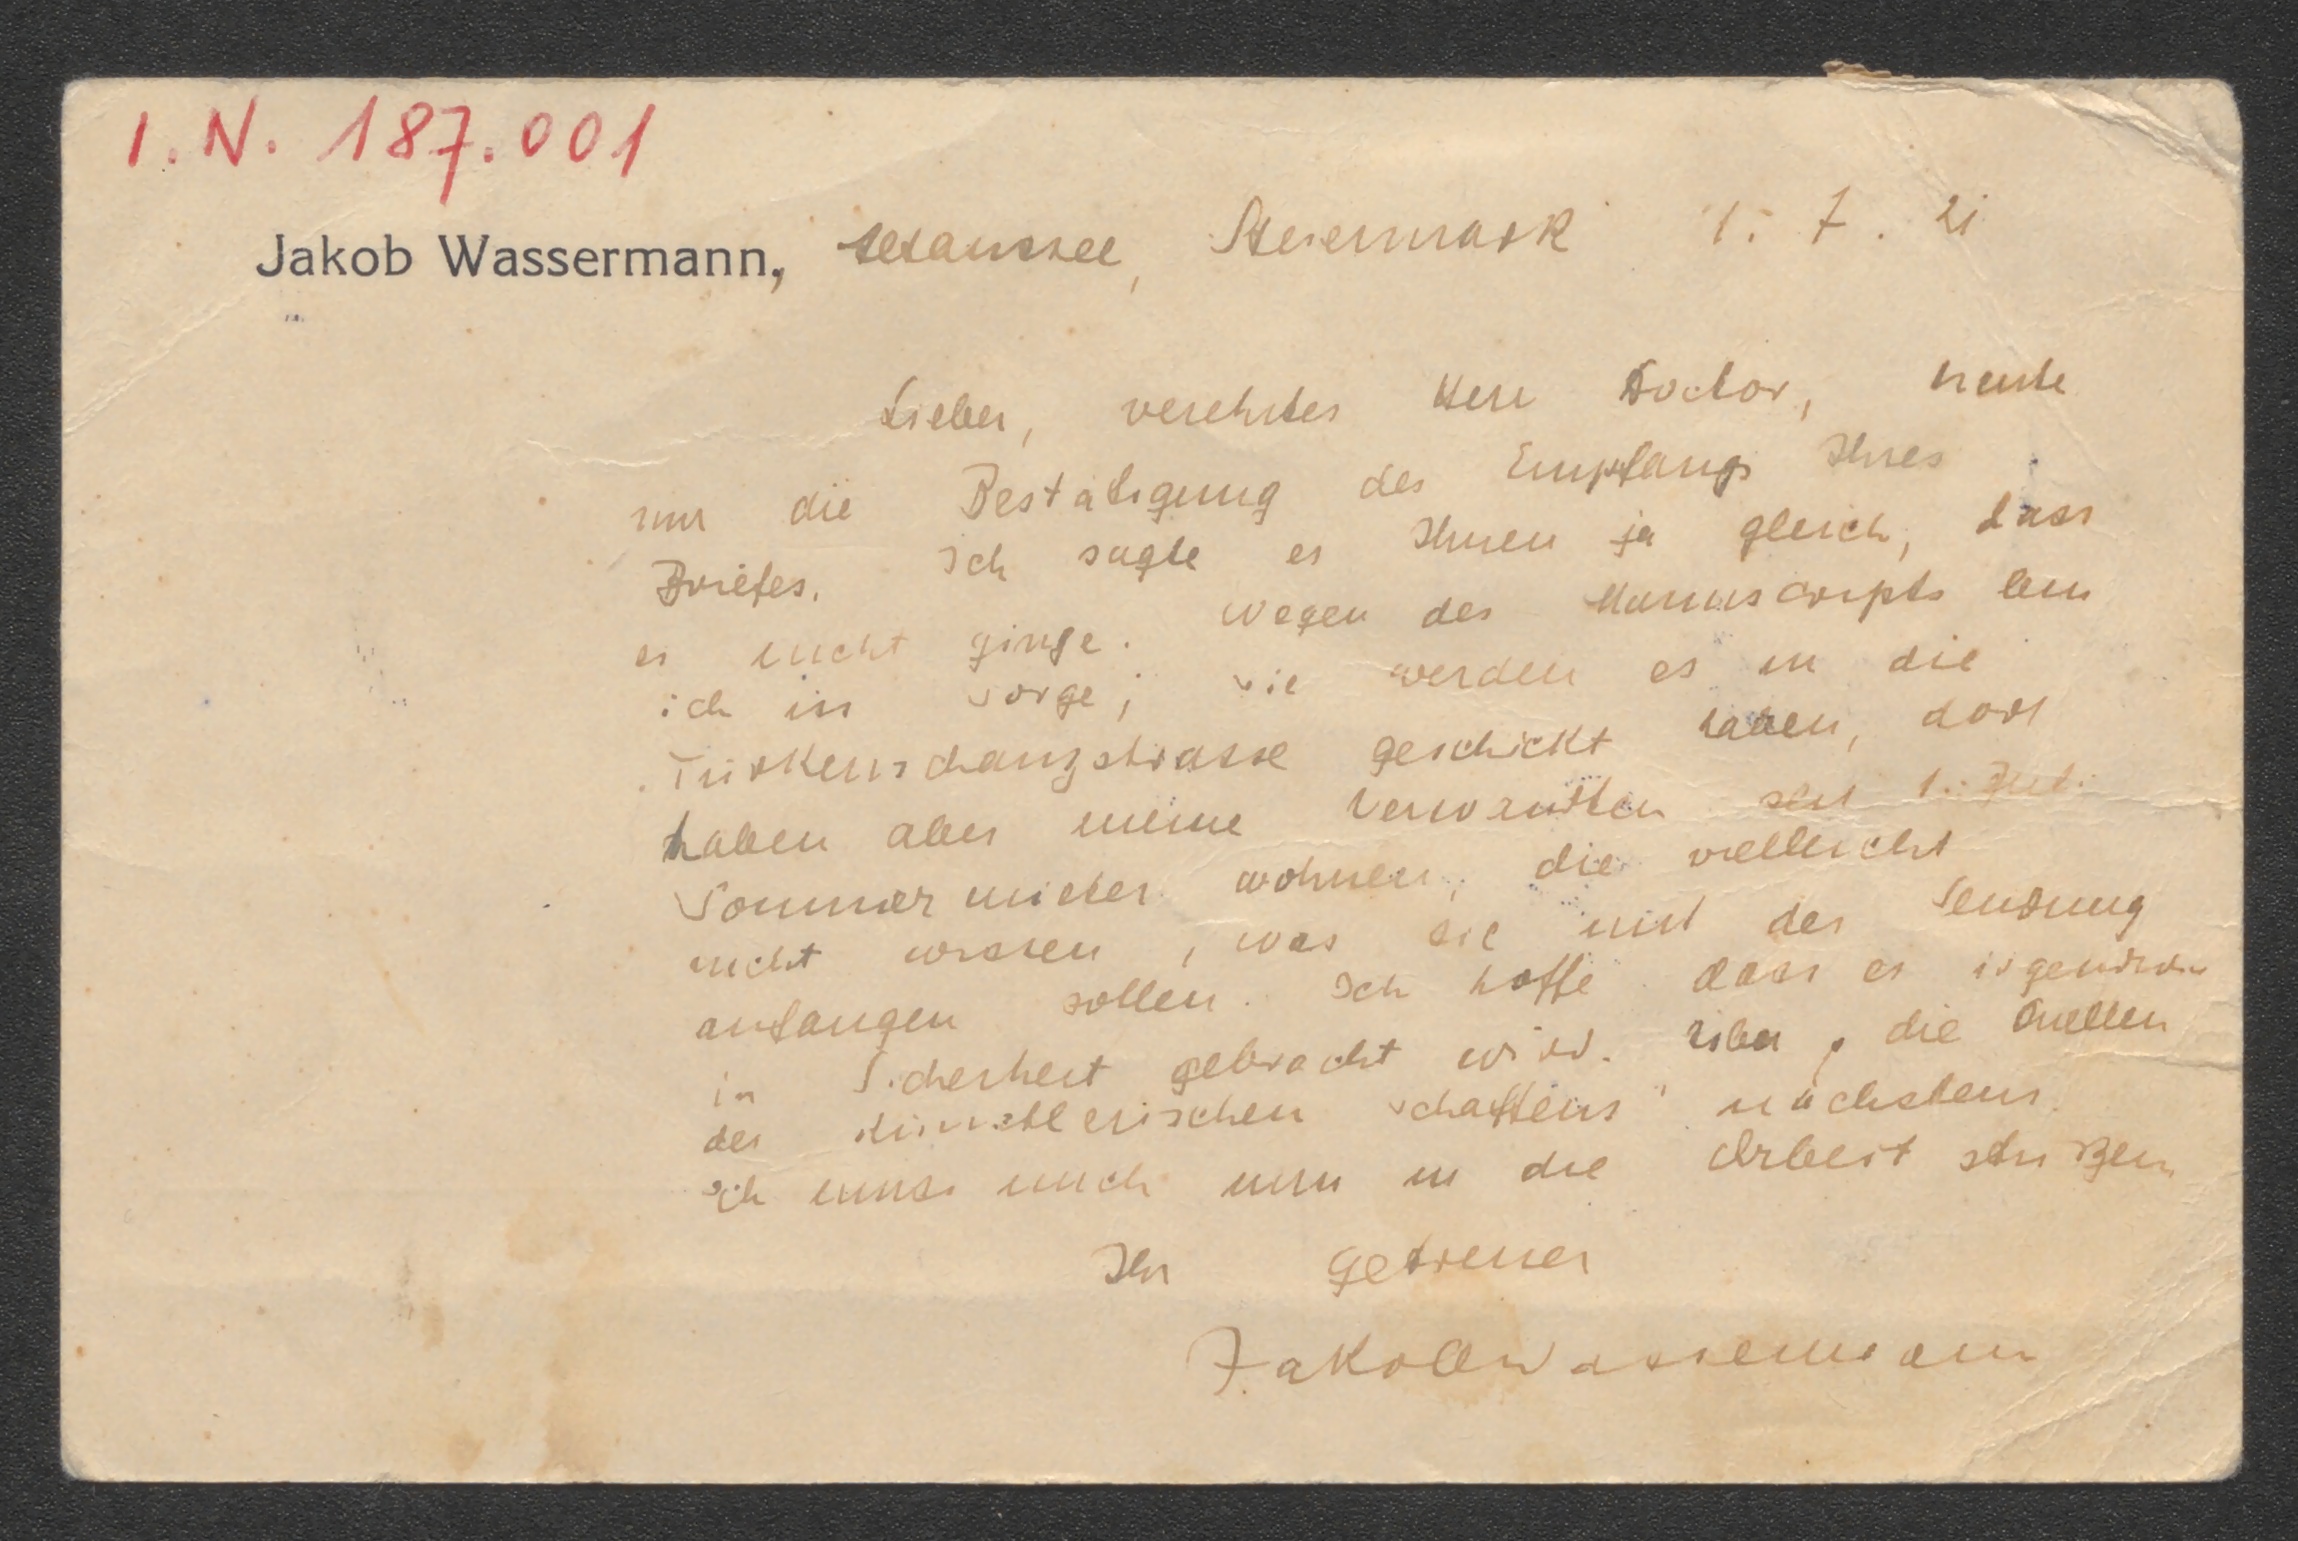 I.N. 187.001
Jakob Wassermann, Altaussee, Steiermark 1. 7. 21
Lieber, verehrter Herr Doctor, heute
nur die Bestätigung des Empfangs Ihres
Briefes. Ich sagte es Ihnen ja gleich, dass
es nicht ginge. Wegen des Manuscripts bin
ich in Sorge; Sie werden es in die
Türkenschanzstrasse geschickt haben, dort
haben aber meine Verwandten seit 1. Juli
Sommermieter wohnen, die vielleicht
nicht wissen, was sie mit der Sendung
anfangen sollen. Ich hoffe dass es irgendwie
in Sicherheit gebracht wird. Über „die Quellen
des künstlerischen Schaffens" nächstens.
Ich muss mich nun in die Arbeit stürzen
Ihr getreuer
Jakob Wassermann